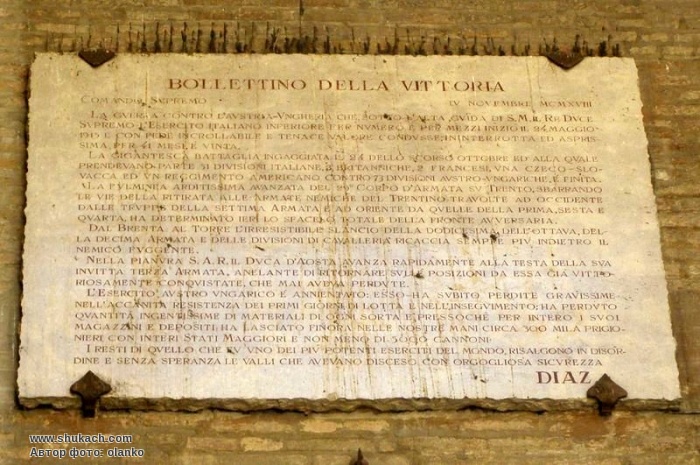 BOLLETTINO DELLA VITTORIA
COMANDO SUPREMO IV NOVEMBRE MCMXVIII
LA GUERRA CONTRO L'AUSTRIA-UNGHERIA CHE, SOTTO L'ALTA GUIDA DI S.M. IL RE DUCE
SUPREMO L'ESERCITO ITALIANO INFERIORE PER NUMERO E PER MEZZI INIZIÒ IL 24 MAGGIO
1915 E CON FEDE INCROLLABILE E TENACE VALORE CONDUSSE ININTERROTTA ED ASPRIS-
SIMA, PER 41 MESI, È VINTA.
LA GIGANTESCA BATTAGLIA INGAGGIATA IL 24 DELLO SCORSO OTTOBRE ED ALLA QUALE
PRENDEVANO PARTE 51 DIVISIONI ITALIANE, 3 BRITANNICHE, 2 FRANCESI, UNA CZECO-SLO-
VACCA ED UN REGGIMENTO AMERICANO CONTRO 73 DIVISIONI AUSTRO-UNGARICHE, È FINITA.
LA FULMINEA ARDITISSIMA AVANZATA DEL 29° CORPO D'ARMATA SU TRENTO, SBARRANDO
LE VIE DELLA RITIRATA ALLE ARMATE NEMICHE DEL TRENTINO, TRAVOLTE AD OCCIDENTE
DALLE TRUPPE DELLA SETTIMA ARMATA E AD ORIENTE DA QUELLE DELLA PRIMA, SESTA E
QUARTA, HA DETERMINATO IERI LO SFACELO TOTALE DELLA FRONTE AVVERSARIA.
DAL BRENTA AL TORRE L'IRRESISTIBILE SLANCIO DELLA DODICESIMA, DELL'OTTAVA, DEL-
LA DECIMA ARMATA E DELLE DIVISIONI DI CAVALLERIA RICACCIA SEMPRE PIÙ INDIETRO IL
NEMICO FUGGENTE.
NELLA PIANURA S.A.R. IL DUCA D'AOSTA AVANZA RAPIDAMENTE ALLA TESTA DELLA SUA
INVITTA TERZA ARMATA, ANELANTE DI RITORNARE SULLE POSIZIONI DA ESSA GIÀ VITTO-
RIOSAMENTE CONQUISTATE, CHE MAI AVEVA PERDUTE.
L'ESERCITO AUSTRO UNGARICO È ANNIENTATO: ESSO HA SUBITO PERDITE GRAVISSIME
NELL'ACCANITA RESISTENZA DEI PRIMI GIORNI DI LOTTA E NELL'INSEGUIMENTO HA PERDUTO
QUANTITÀ INGENTISSIME DI MATERIALI DI OGNI SORTA E PRESSOCHÉ PER INTERO I SUOI
MAGAZZINI E DEPOSITI, HA LASCIATO FINORA NELLE NOSTRE MANI CIRCA 300 MILA PRIGIO-
NIERI CON INTERI STATI MAGGIORI E NON MENO DI 5000 CANNONI.
I RESTI DI QUELLO CHE FU UNO DEI PIÙ POTENTI ESERCITI DEL MONDO, RISALGONO IN DISOR-
DINE E SENZA SPERANZA LE VALLI CHE AVEVANO DISCESO CON ORGOGLIOSA SICUREZZA
DIAZ
www.shukach.com
Автор фото: olanko